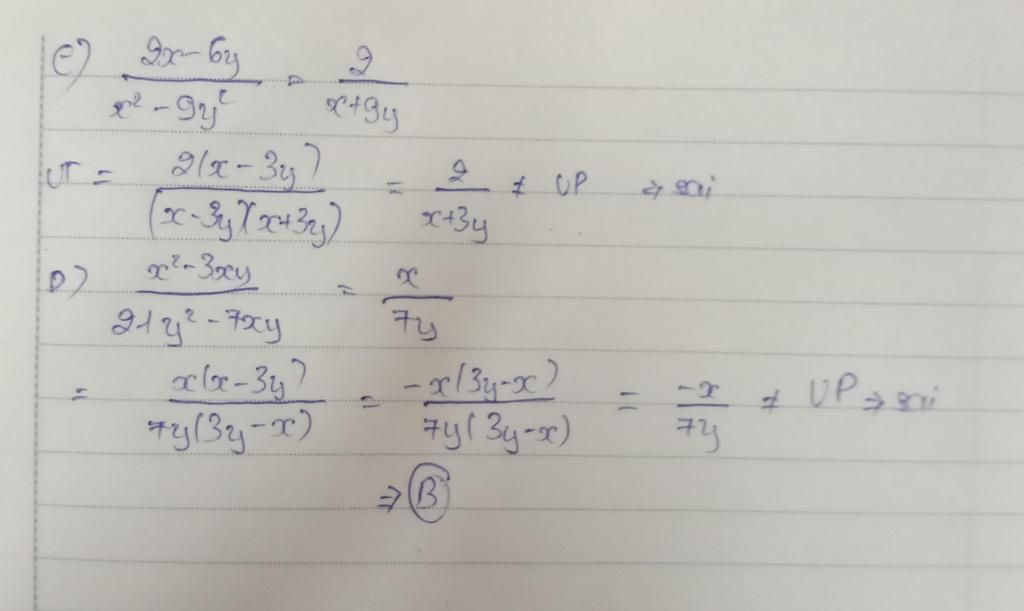 C) \frac{2x-6y}{x^2-9y^2} = \frac{2}{x+9y}
VT = \frac{2(x-3y)}{(x-3y)(x+3y)} = \frac{2}{x+3y} ≠ VP ⇒ sai
D) \frac{x^2-3xy}{21y^2-7xy} = \frac{x}{7y}
= \frac{x(x-3y)}{7y(3y-x)} = \frac{-x(3y-x)}{7y(3y-x)} = \frac{-x}{7y} ≠ VP ⇒ sai
⇒ B